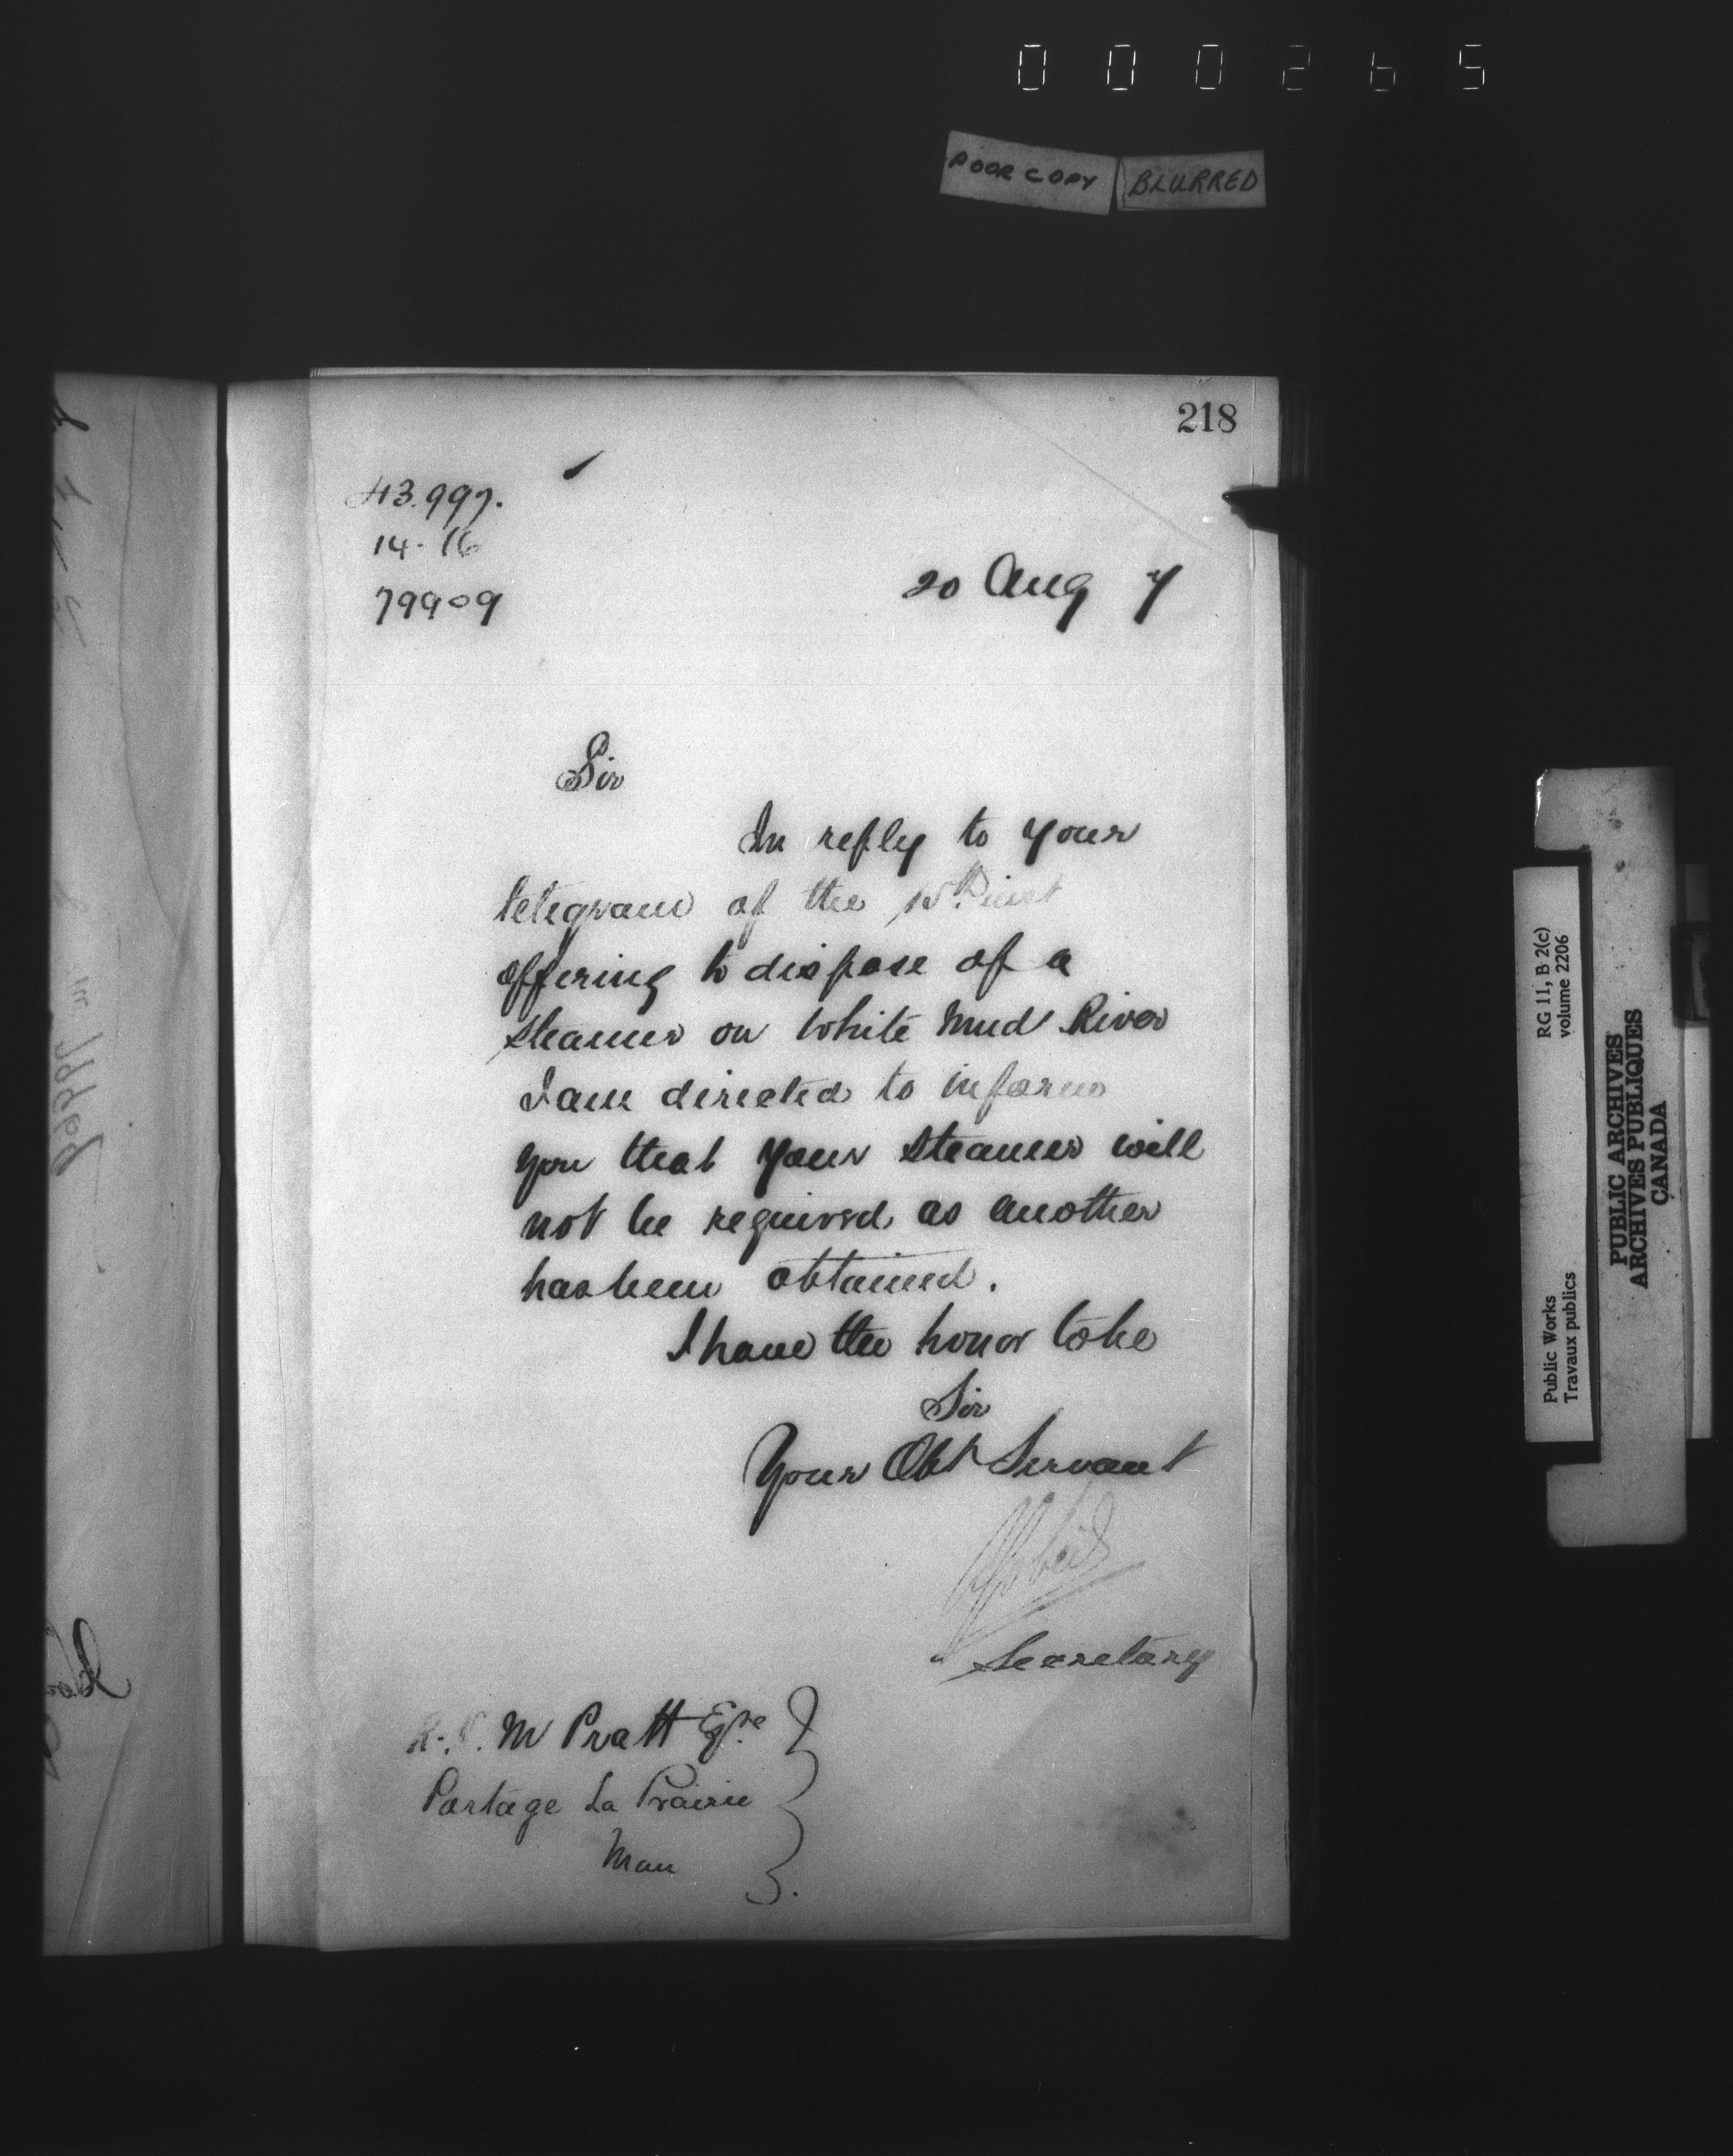 000265
POOR COPY BLURRED
218
43.997.
14-16
79909
20 Aug 7
Sir
In reply to your
telegram of the 15th inst
offering to dispose of a
steamer on White Mud River
I am directed to inform
you that your steamer will
not be required as another
has been obtained.
I have the honor to be
Sir
Your Obt Servant
Secretary
M Pratt Esqre
Portage La Prairie
Man
Public Works
Travaux publics
RG 11, B 2(c)
volume 2206
PUBLIC ARCHIVES
ARCHIVES PUBLIQUES
CANADA